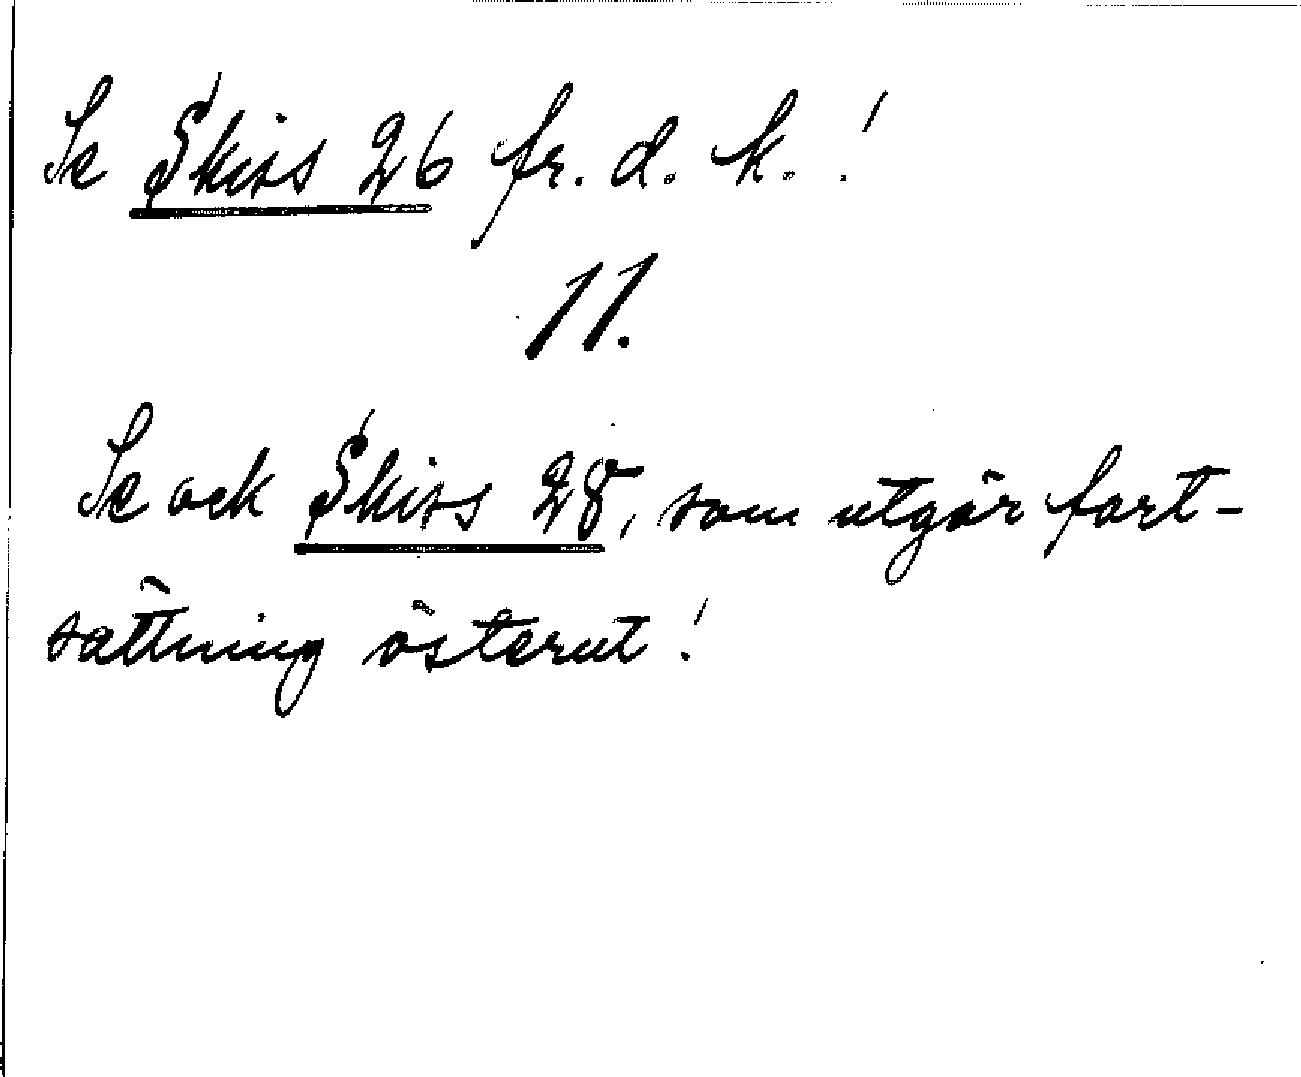 Se Skiss 26 fr. d. k.!
11.
Se ock Skiss 28, som utgör fort-
sättning österut!